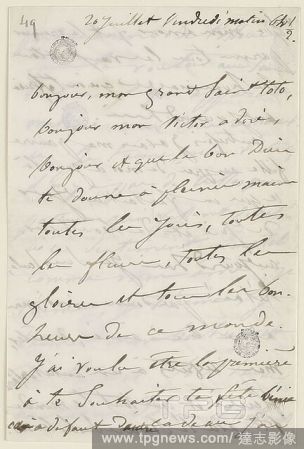 49
20 juillet Vendredi matin
2.
bonjour, mon grand Saint toto,
bonjour mon Victor adoré,
bonjour et que le bon Dieu
te donne à pleine main
toutes les joies, toutes
les fleurs, toutes les
gloires et tous les bon-
heurs de ce monde.
J'ai voulu être la première
à te souhaiter ta fête
à défaut d'autre cadeau
TPG
www.tpgnews.com/達志影像